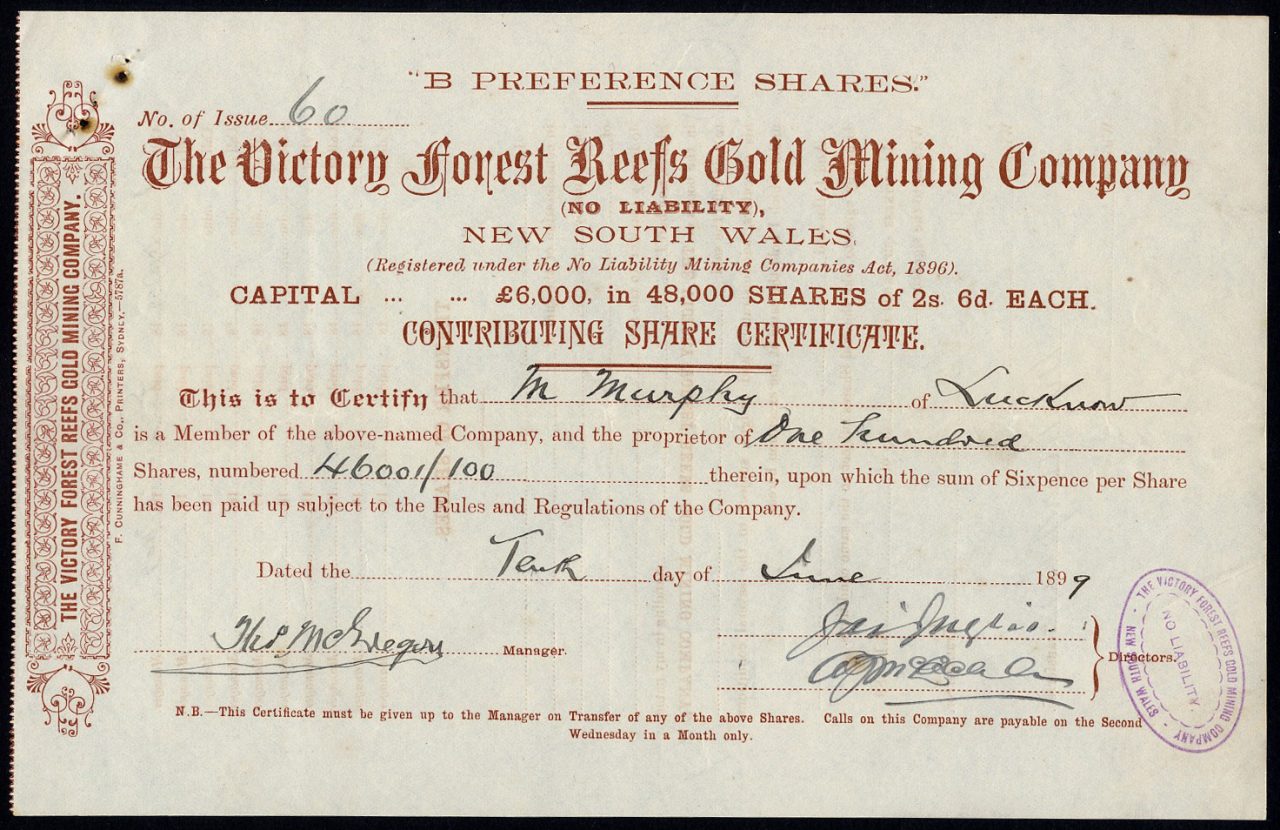 "B PREFERENCE SHARES."
No. of Issue 60
The Victory Forest Reefs Gold Mining Company
(NO LIABILITY),
NEW SOUTH WALES.
(Registered under the No Liability Mining Companies Act, 1896).
CAPITAL ... ... £6,000, in 48,000 SHARES of 2s. 6d. EACH.
CONTRIBUTING SHARE CERTIFICATE.
This is to Certify that M Murphy of Lucknow
is a Member of the above-named Company, and the proprietor of One hundred
Shares, numbered 46001/100 therein, upon which the sum of Sixpence per Share
has been paid up subject to the Rules and Regulations of the Company.
Dated the Tenth day of June 1899
Thos McGregor Manager.
Jas Inglis
Directors.
N.B.—This Certificate must be given up to the Manager on Transfer of any of the above Shares. Calls on this Company are payable on the Second
Wednesday in a Month only.
THE VICTORY FOREST REEFS GOLD MINING COMPANY.
F. CUNNINGHAME & CO., PRINTERS, SYDNEY.—5787a.
THE VICTORY FOREST REEFS GOLD MINING COMPANY
NO LIABILITY
NEW SOUTH WALES